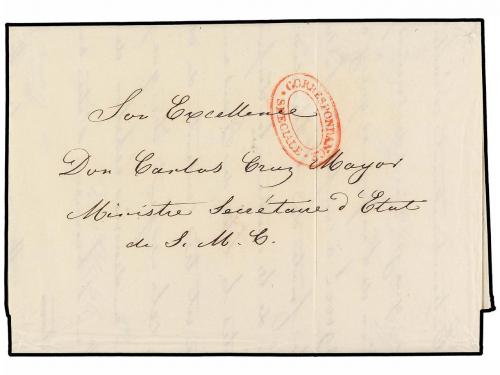 Son Excellence
Don Carlos Cruz Mayor
Ministre Secrétaire d'Etat
de S. M. C.
CORRESPONDANCE SPECIALE